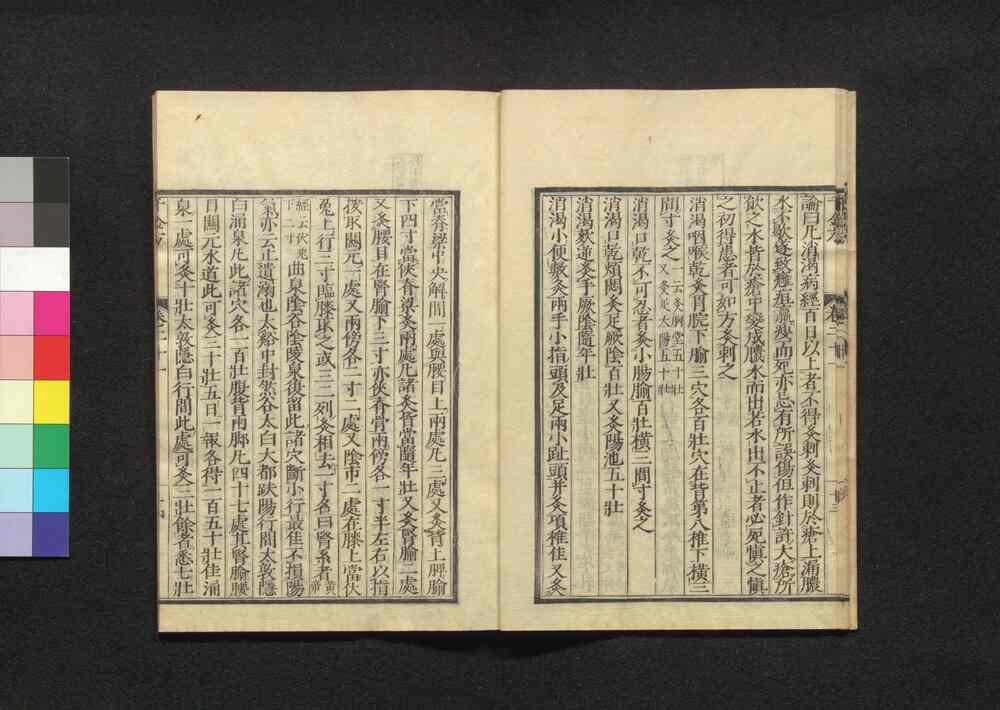 論曰凡消渴病經百日以上者不得灸刺灸刺則於瘡上漏膿
水不歇遂致癰疽羸瘦而死亦忌有所誤傷但作針許大瘡所
飲之水皆於瘡中變成膿水而出若水出不止者必死愼之愼
之初得患者可如方灸刺之
消渴咽喉乾灸胃脘下腧三穴各百壯穴在背第八椎下橫三
間寸灸之一云灸胸堂五十壯又灸足太陽五十壯
消渴口乾不可忍者灸小腸腧百壯橫三間寸灸之
消渴口乾煩悶灸足厥陰百壯又灸陽池五十壯
消渴欬逆灸手厥陰隨年壯
消渴小便數灸兩手小指頭及足兩小趾頭并灸項椎佳又灸
當脊梁中央解間一處與腰目上兩處凡三處又灸背上脾腧
下四寸當俠脊梁灸兩處凡諸灸皆當隨年壯又灸腎腧二處
又灸腰目在腎腧下三寸亦俠脊骨兩傍各一寸半左右以指
按取關元一處又兩傍各二寸二處又陰市二處在膝上當伏
兔上行三寸臨膝取之或三二列灸相去一寸名曰腎系者黃帝
經云伏兔下二寸曲泉陰谷陰陵泉復留此諸穴斷小行最佳不損陽
氣亦云止遺溺也太谿中封然谷太白大都趺陽行間大敦隱
白涌泉凡此諸穴各一百壯腹背兩脚凡四十七處其腎腧腰
目關元水道此可灸三十壯五日一報各得一百五十壯佳涌
泉一處可灸十壯大敦隱白行間此處可灸三壯餘者悉七壯